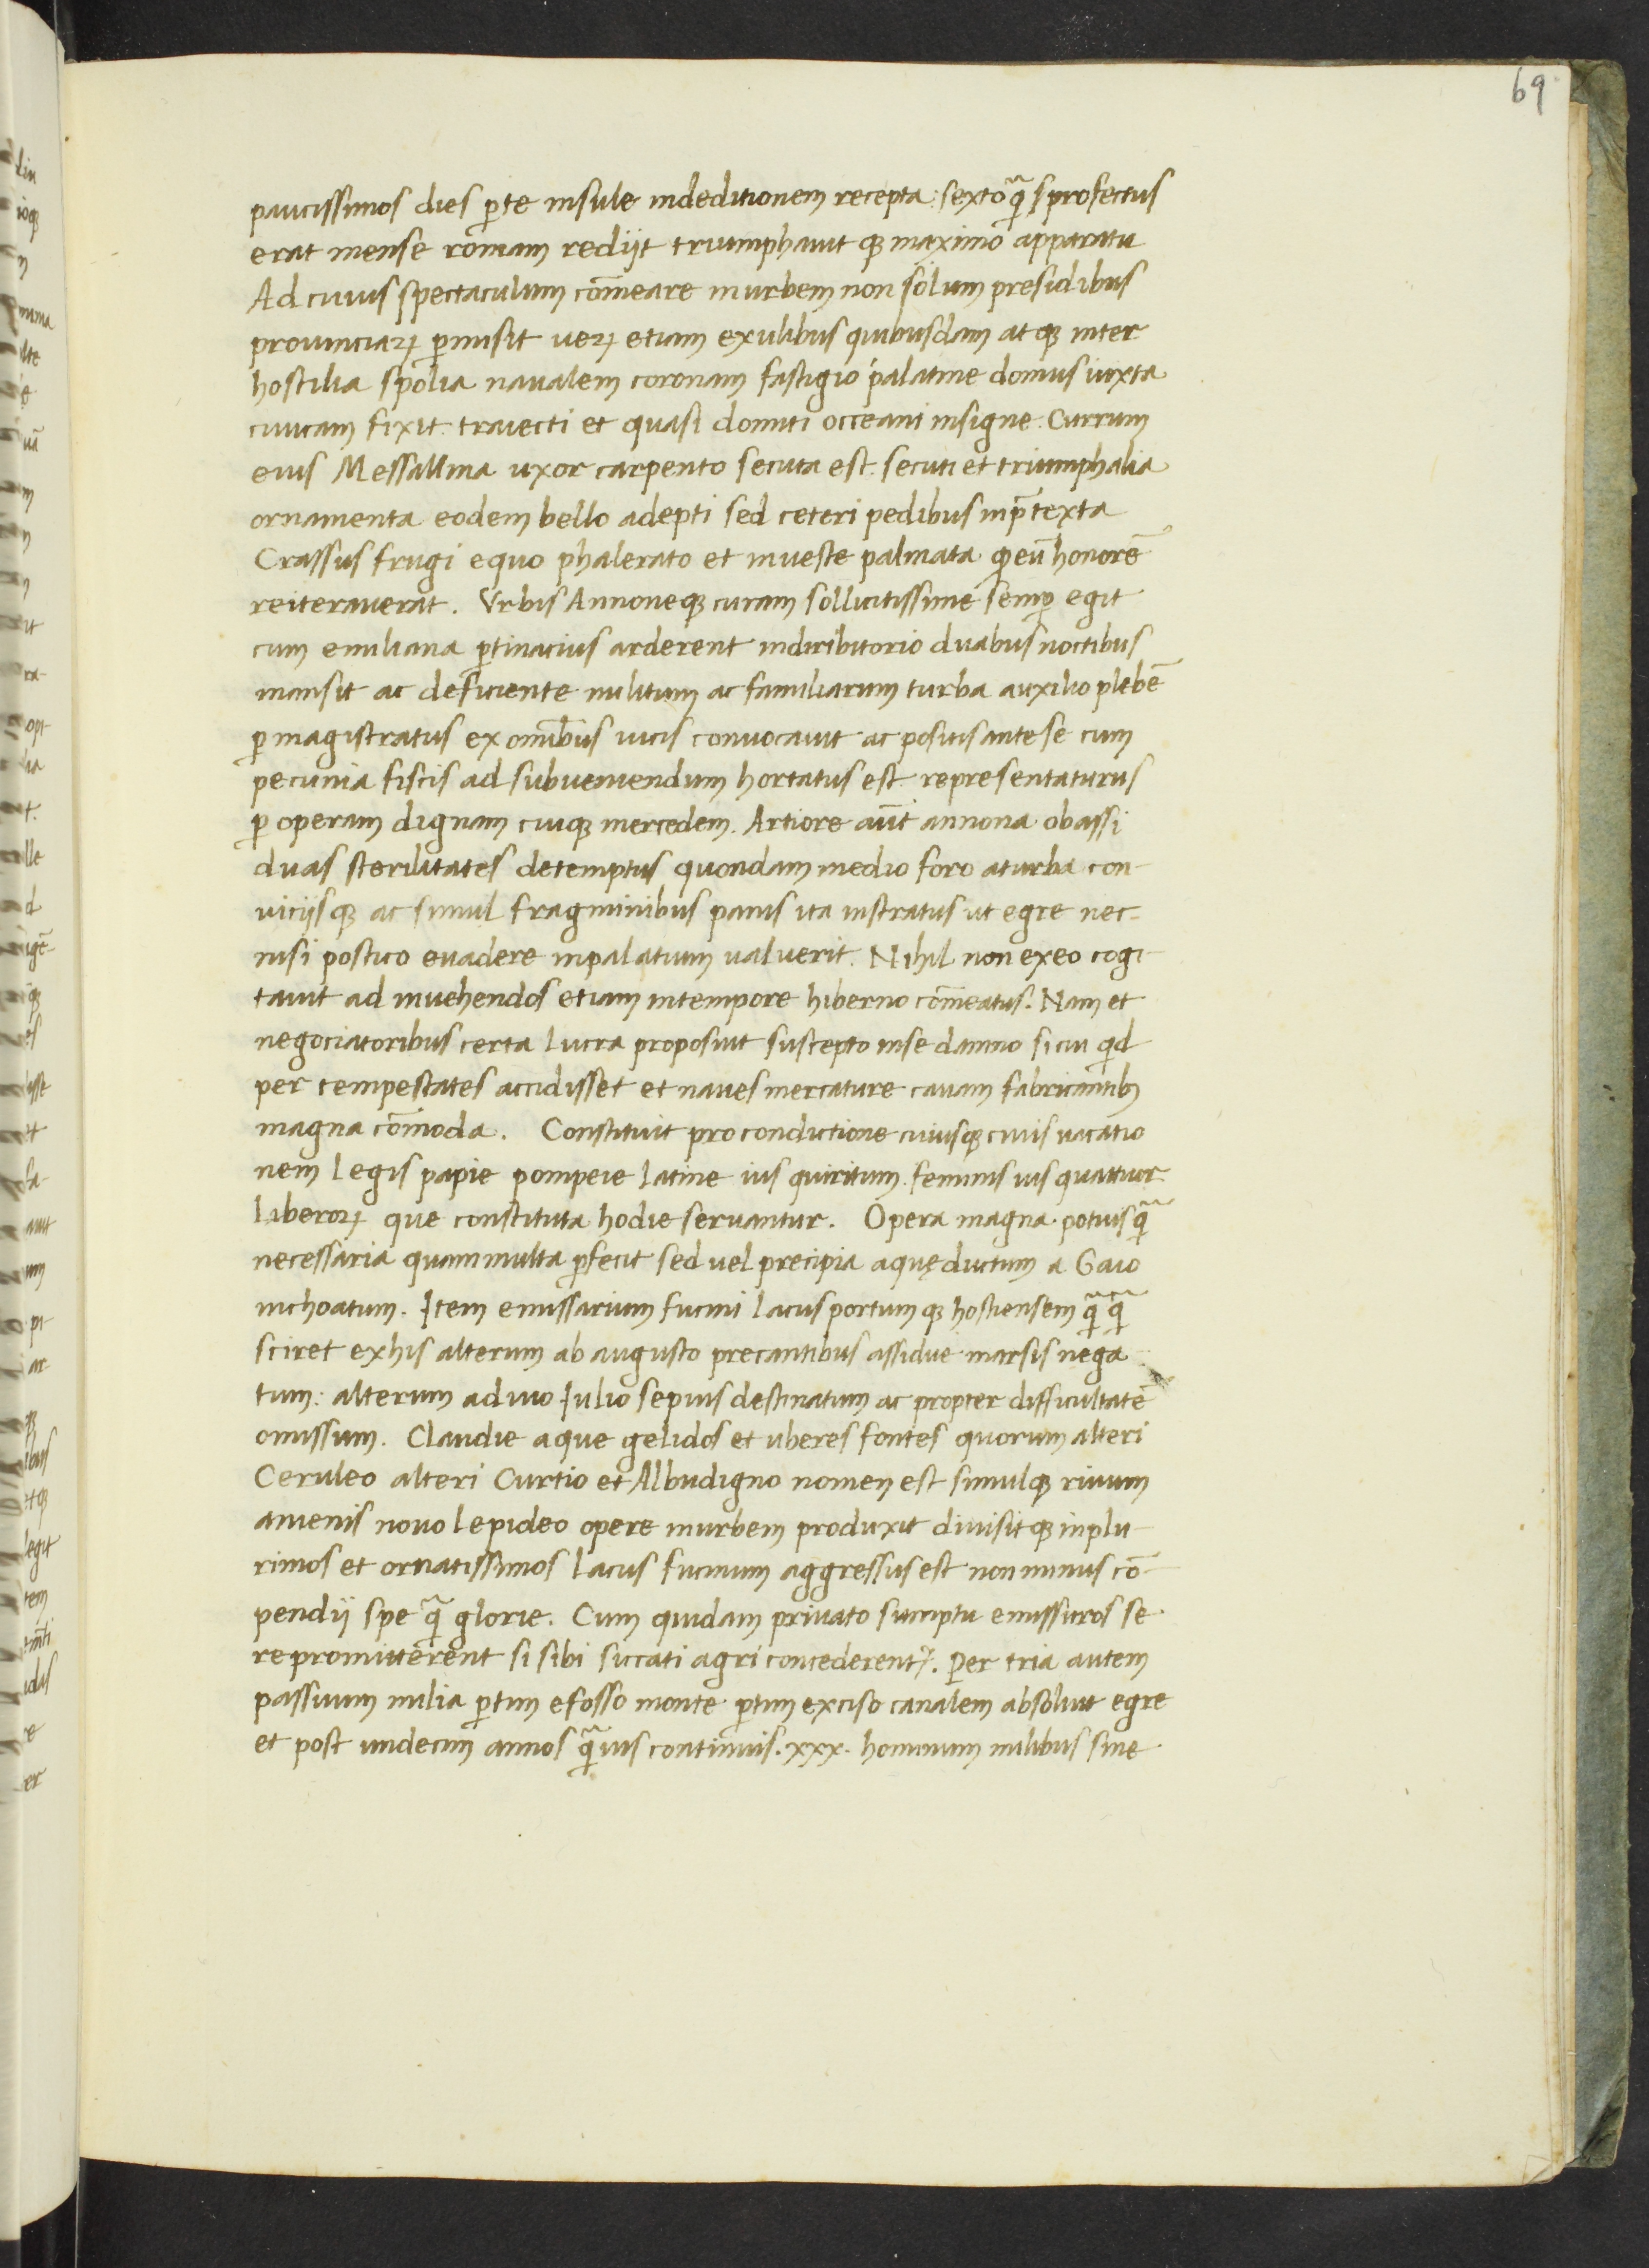 69
paucissimos dies ꝑte insule indeditionem recepta: sexto q̃ꝫ profectus
erat mense romam redijt triumphauit qꝫ maximo apparatu
Ad cuius spectaculum cōmeare inurbem non solum presidibus
prouinciaꝝ ꝑmisit ueꝝ etiam exulibus quibusdam atqꝫ inter
hostilia spolia naualem coronam fastigio palatine domus iuxta
ciuicam fixit traiecti et quasi domiti occeani insigne. Currum
eius Messallina uxor carpento secuta est. secuti et triumphalia
ornamenta eodem bello adepti sed ceteri pedibus inp̄texta
Crassus frugi equo phalerato et inueste palmata ꝙ eū honorē
reiterauerat. Vrbis Annoneqꝫ curam sollicitissime semꝑ egit
cum emiliana ꝑtinacius arderent indiribitorio duabus noctibus
mansit ac deficiente militum ac familiarum turba auxilio plebē
ꝑ magistratus ex omībus uicis conuocauit ac positis ante se cum
pecunia fiscis ad subueniendum hortatus est representaturus
ꝑ operam dignam cuiqꝫ mercedem. Artiore aūt annona obassi
duas sterilitates detemptus quondam medio foro aturba con-
uicijsqꝫ ac simul fragminibus panis ita instratus ut egre nec-
nisi postico euadere inpalatium ualuerit. Nihil non exeo cogi-
tauit ad inuehendos etiam intempore hiberno cōmeatus. Nam et
negociatoribus certa lucra proposuit suscepto inse damno sicui qͥd
per tempestates accidisset et naues mercature cauam fabricantibꝫ
magna cōmoda. Constituit pro condictione cuiusqꝫ ciuis uacatio
nem legis papie pompeie latine ius quiritum. feminis ius quattuor
liberoꝝ que constituta hodie seruantur. Opera magna potuisq̃
necessaria quam multa ꝑfecit sed uel precipia aquęductum a Gaio
inchoatum. Item emissarium fucini lacus portumqꝫ hostiensem q̃q̃
sciret exhis alterum ab augusto precantibus assidue marsis nega
tum: alterum adiuo Iulio sepius destinatum ac propter difficultatē
omissum. Claudie aque gelidos et uberes fontes quorum alteri
Ceruleo alteri Curtio et Albudigno nomen est simulqꝫ riuum
anienis nouo lepideo opere inurbem produxit diuisitqꝫ inplu-
rimos et ornatissimos lacus fucinum aggressus est non minus cō-
pendij spe q̃ glorie. Cum quidam priuato sumptu emissuros se
repromitterent si sibi siccati agri concederent᷑. Per tria autem
passuum milia ꝑtim efosso monte ꝑtim exciso canalem absoluit egre
et post undecim annos q̃uis continuis. xxx. hominum milibus sine